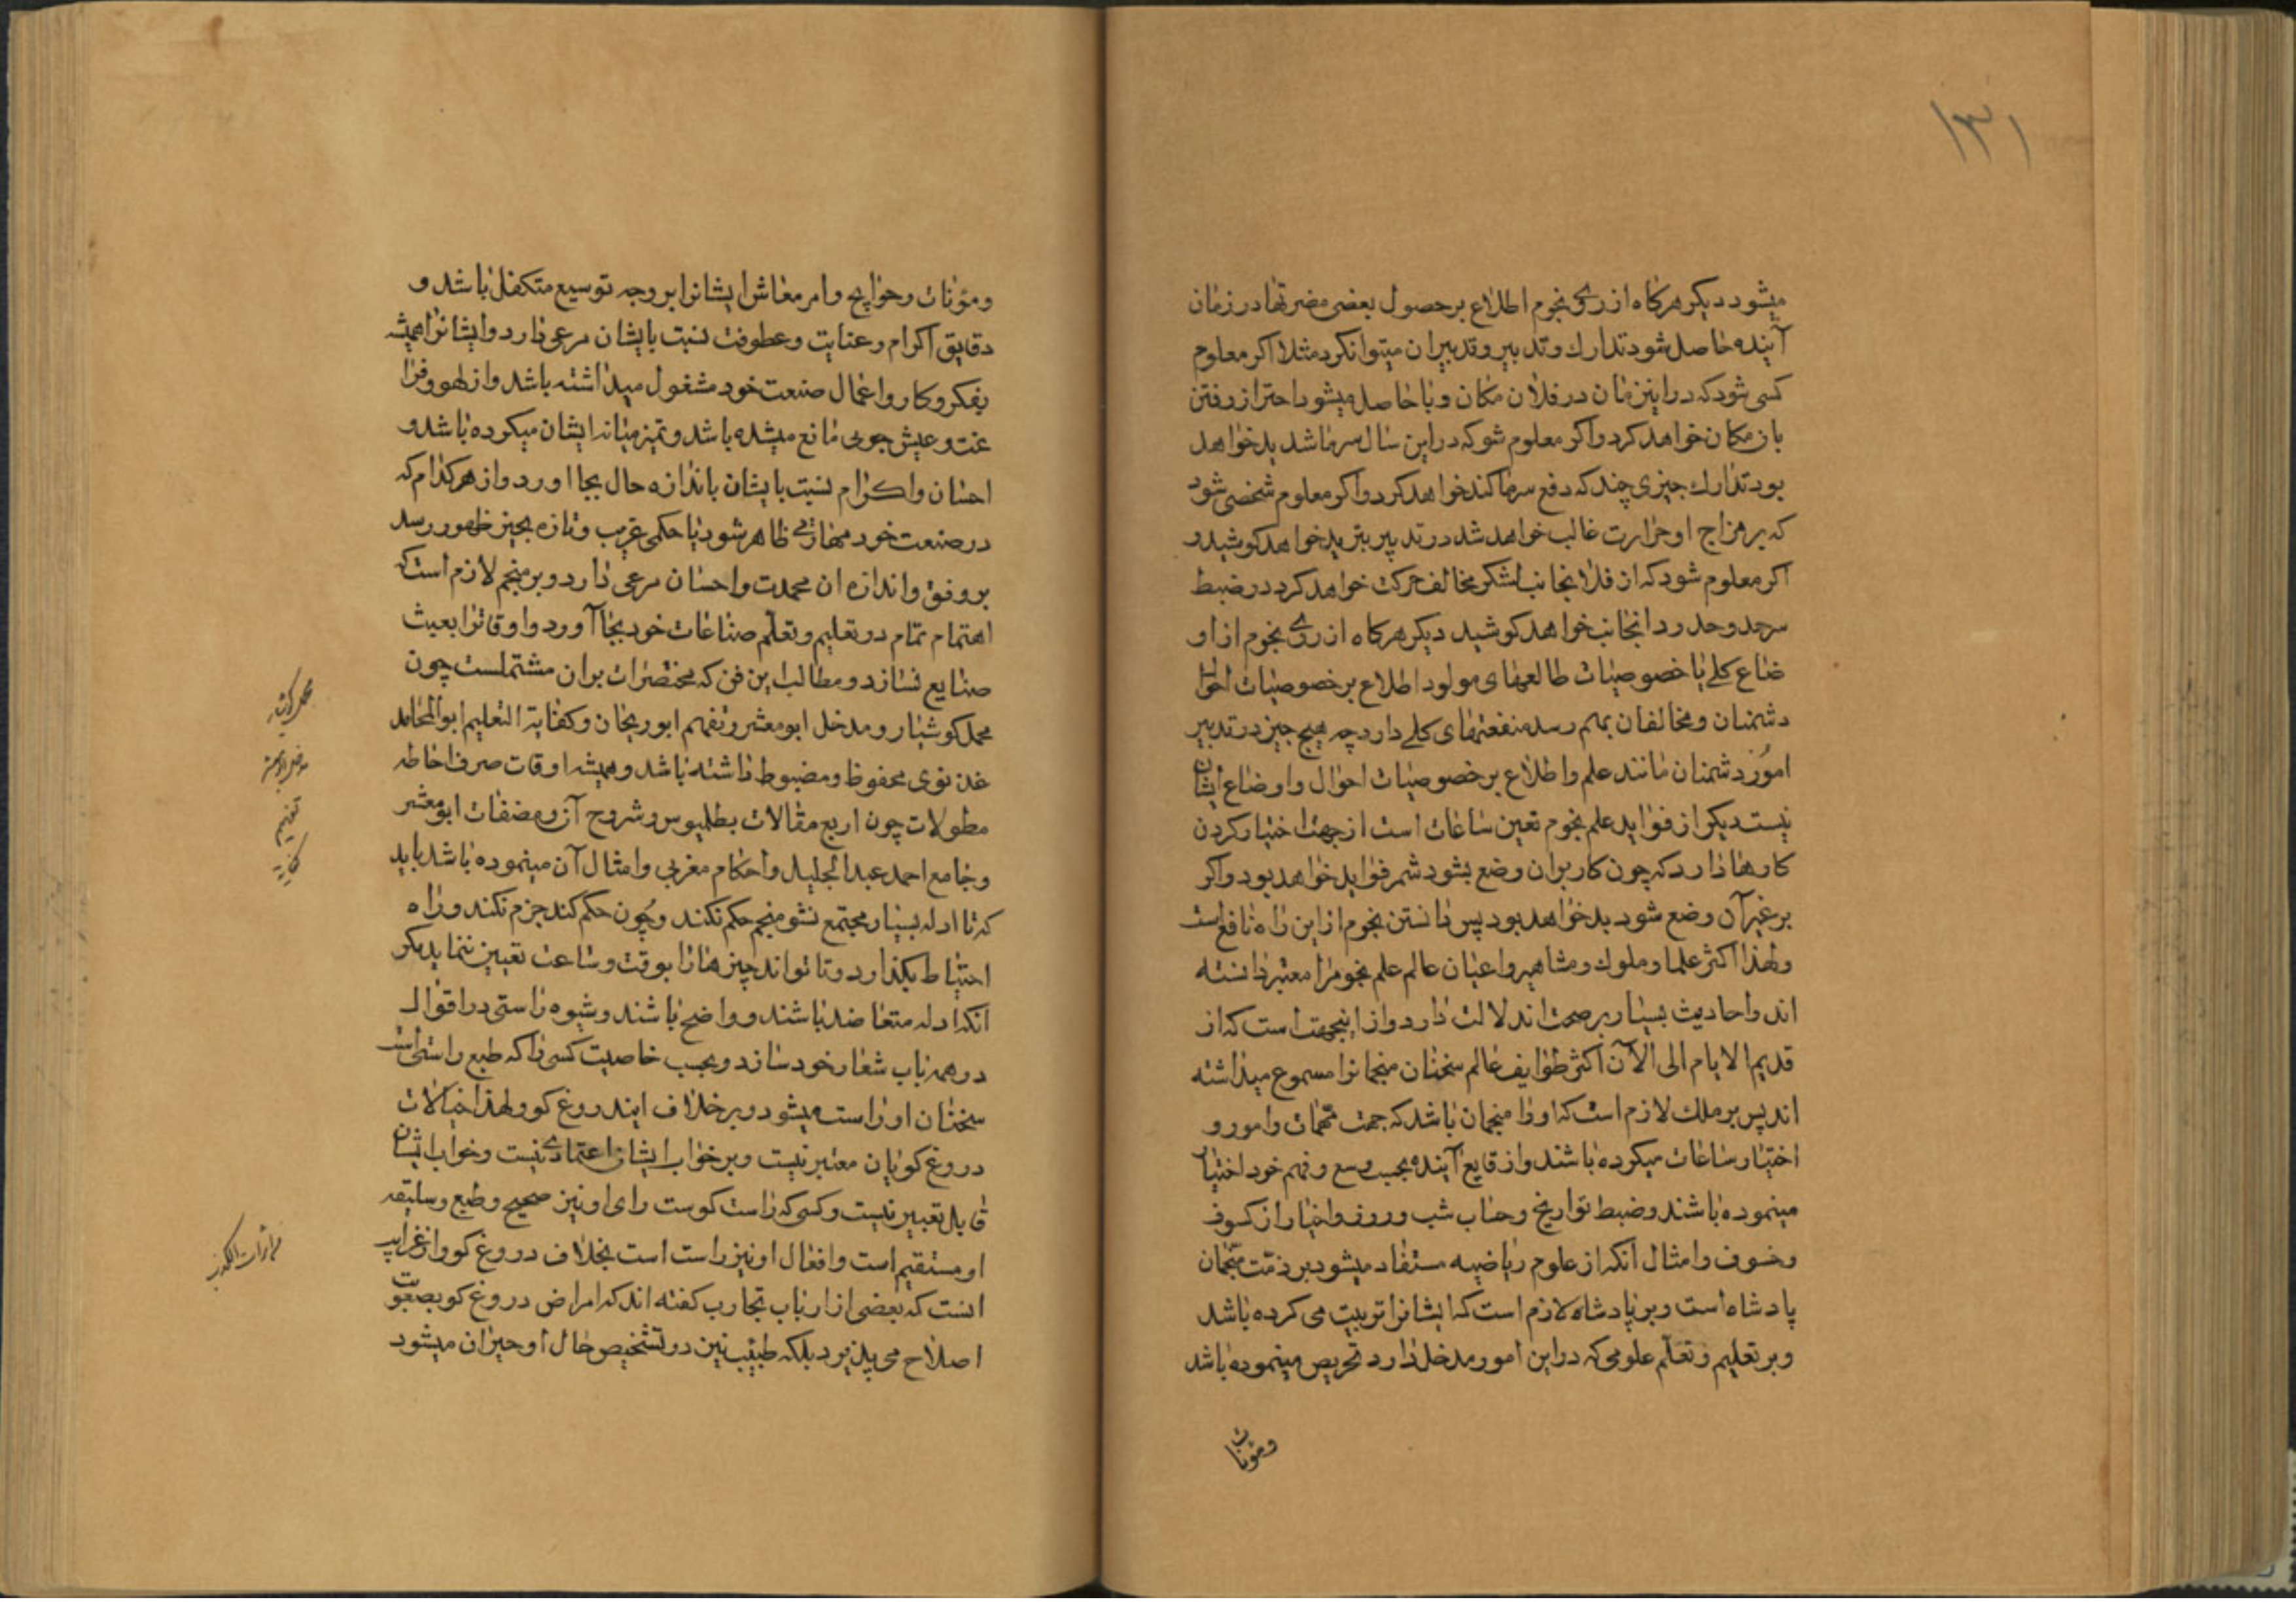 ۱۳۱
میشود دیکر هرکاه از روی نجوم اطلاع بر حصول بعضی مضرتها در زمان
آینده حاصل شود تدارك و تدبیر و تدبیر ان میتوان کرد مثلا اکر معلوم
کسی شود که در این زمان در فلان مکان وبا حاصل میشود احتراز رفتن
بان مکان خواهد کرد و اکر معلوم شو که در این سال سرما شدید خواهد
بود تدارك چیزی چند که دفع سرما کند خواهد کرد و اکر معلوم شخصی شود
که بر مزاج او حرارت غالب خواهد شد در تدبیر تبرید خواهد کوشید و
اکر معلوم شود که از فلان جانب لشکر مخالف حرکت خواهد کرد در ضبط
سرحد و حدود انجانب خواهد کوشید دیکر هرکاه از روی نجوم از او
ضاع کلی یا خصوصیات طالعهای مولود اطلاع بر خصوصیات احوال
دشمنان و مخالفان بهم رسد منفعتهای کلی دارد چه هیچ چیز در تدبیر
امور دشمنان مانند علم و اطلاع بر خصوصیات احوال و اوضاع ایشان
نیست دیکر از فواید علم نجوم تعین ساعات است از جهت اختیار کردن
کارها دارد که چون کار بر ان وضع بشود ثمر فواید خواهد بود و اکر
بر غیر آن وضع شود بد خواهد بود پس دانستن نجوم از این راه نافع است
ولهذا اکثر علما و ملوك و مشاهیر و اعیان عالم علم نجوم را معتبر دانسته
اند و احادیث بسیار بر صحت اند لالت دارد و از اینجهت است که از
قدیم الایام الی الآن اکثر طوایف عالم سخنان منجمانرا مسموع میداشته
اند پس بر ملك لازم است که او را منجمان باشد که جهت مهمات و امور و
اختیار ساعات میکرده باشند و از قایع آینده بحسب وسع و فهم خود اختیار
مینموده باشند و ضبط تواریخ و حساب شب و روز و اخبار از کسوف
و خسوف و امثال آنکه از علوم ریاضیه مستفاد میشود بر ذمّت منجّمان
پادشاه است و بر پادشاه لازم است که ایشانرا تربیت می کرده باشد
و بر تعلیم و تعلّم علومی که در این امور مدخل دارد تحریص مینموده باشد
و مؤنات
و مؤنات و حوایج و امر معاش ایشانرا بر وجه توسیع متکفل باشد و
دقایق اکرام و عنایت و عطوفت نسبت بایشان مرعی دارد و ایشانرا همیشه
بفکر و کار و اعمال صنعت خود مشغول میداشته باشد و از لهو و فرا
غت و عیش جویی مانع میشده باشد و تمیز میانه ایشان میکرده باشد و
احسان و اکرام نسبت بایشان باندازه حال بجا اورد و از هر کدام که
در صنعت خود مهارتی ظاهر شود یا حکمی غریب و تازه بحیز ظهور رسد
بر وفق و اندازه ان محمدت و احسان مرعی دارد و بر منجم لازم است که
اهتمام تمام در تعلیم و تعلّم صناعات خود بجا آورد و اوقاترا بعبث
ضایع نسازد و مطالب این فن که مختصرات بران مشتملست چون
مجمل کوشیار و مدخل ابو معشر و تفهیم ابوریحان و کفایة التعلیم ابو المحامد
غزنوی محفوظ و مضبوط داشته باشد و همیشه اوقات صرف احاطه
مطولات چون اربع مقالات بطلمیوس و شروح آن و مصنفات ابو معشر
و جامع احمد عبد الجلیل و احکام مغربی و امثال آن مینموده باشد باید
که تا ادله بسیار مجتمع نشو منجم حکم نکند و چون حکم کند جزم نکند و راه
احتیاط بگذارد و تا تواند چیزها را بوقت و ساعت تعیین ننماید مکر
انکه ادله متعاضد باشند و واضح باشند و شیوه راستی در اقوال
در همه باب شعار خود سازد و بحسب خاصیت کسی را که طبع راستی است
سخنان او راست میشود و بر خلاف ایند روغ کو و لهذا خیالات
دروغ کویان معتبر نیست و بر خواب ایشان اعتمادی نیست و خواب ایشان
قابل تعبیر نیست و کسی که راست کوست رای او نیز صحیح و طبع و سلیقه
او مستقیم است و افعال او نیز راست است بخلاف دروغ کو و از غرایب
انست که بعضی از ارباب تجارب کفته اند که امراض دروغ کو بصعوبت
اصلاح می پذیرد بلکه طبیب نیز در تشخیص حال او حیران میشود
مدخل ابو معشر
تفهیم
کفایة